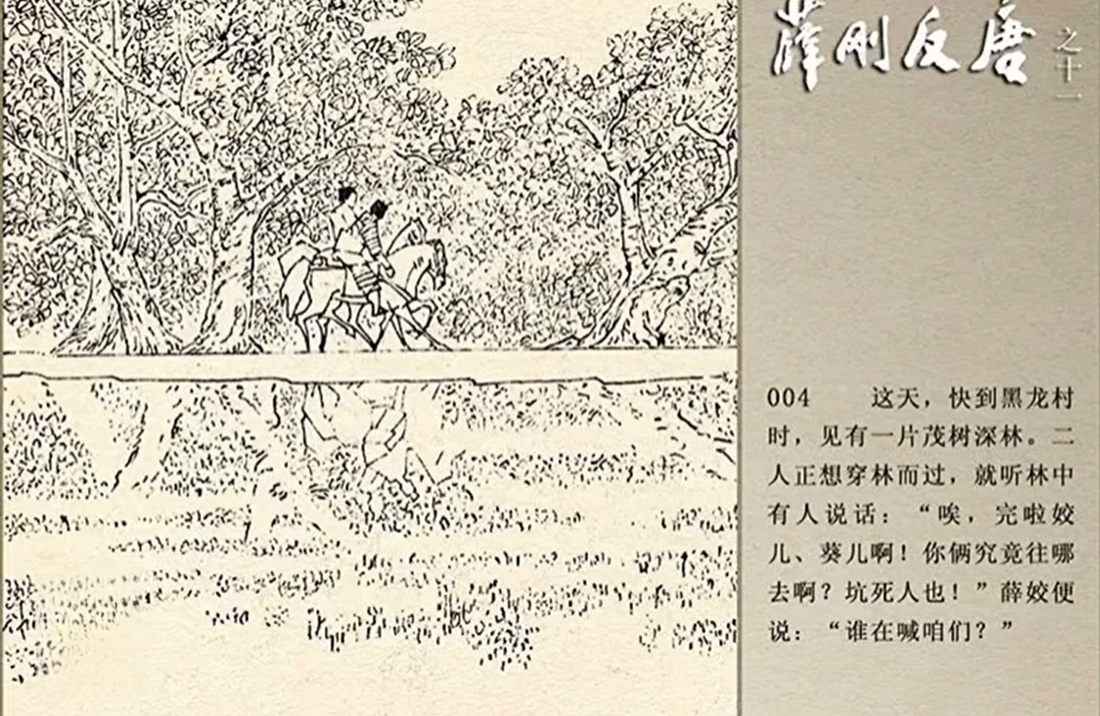 薛刚反唐
之十一
004 这天，快到黑龙村
时，见有一片茂树深林。二
人正想穿林而过，就听林中
有人说话：“唉，完啦姣
儿、葵儿啊！你俩究竟往哪
去啊？坑死人也！”薛姣便
说：“谁在喊咱们？”